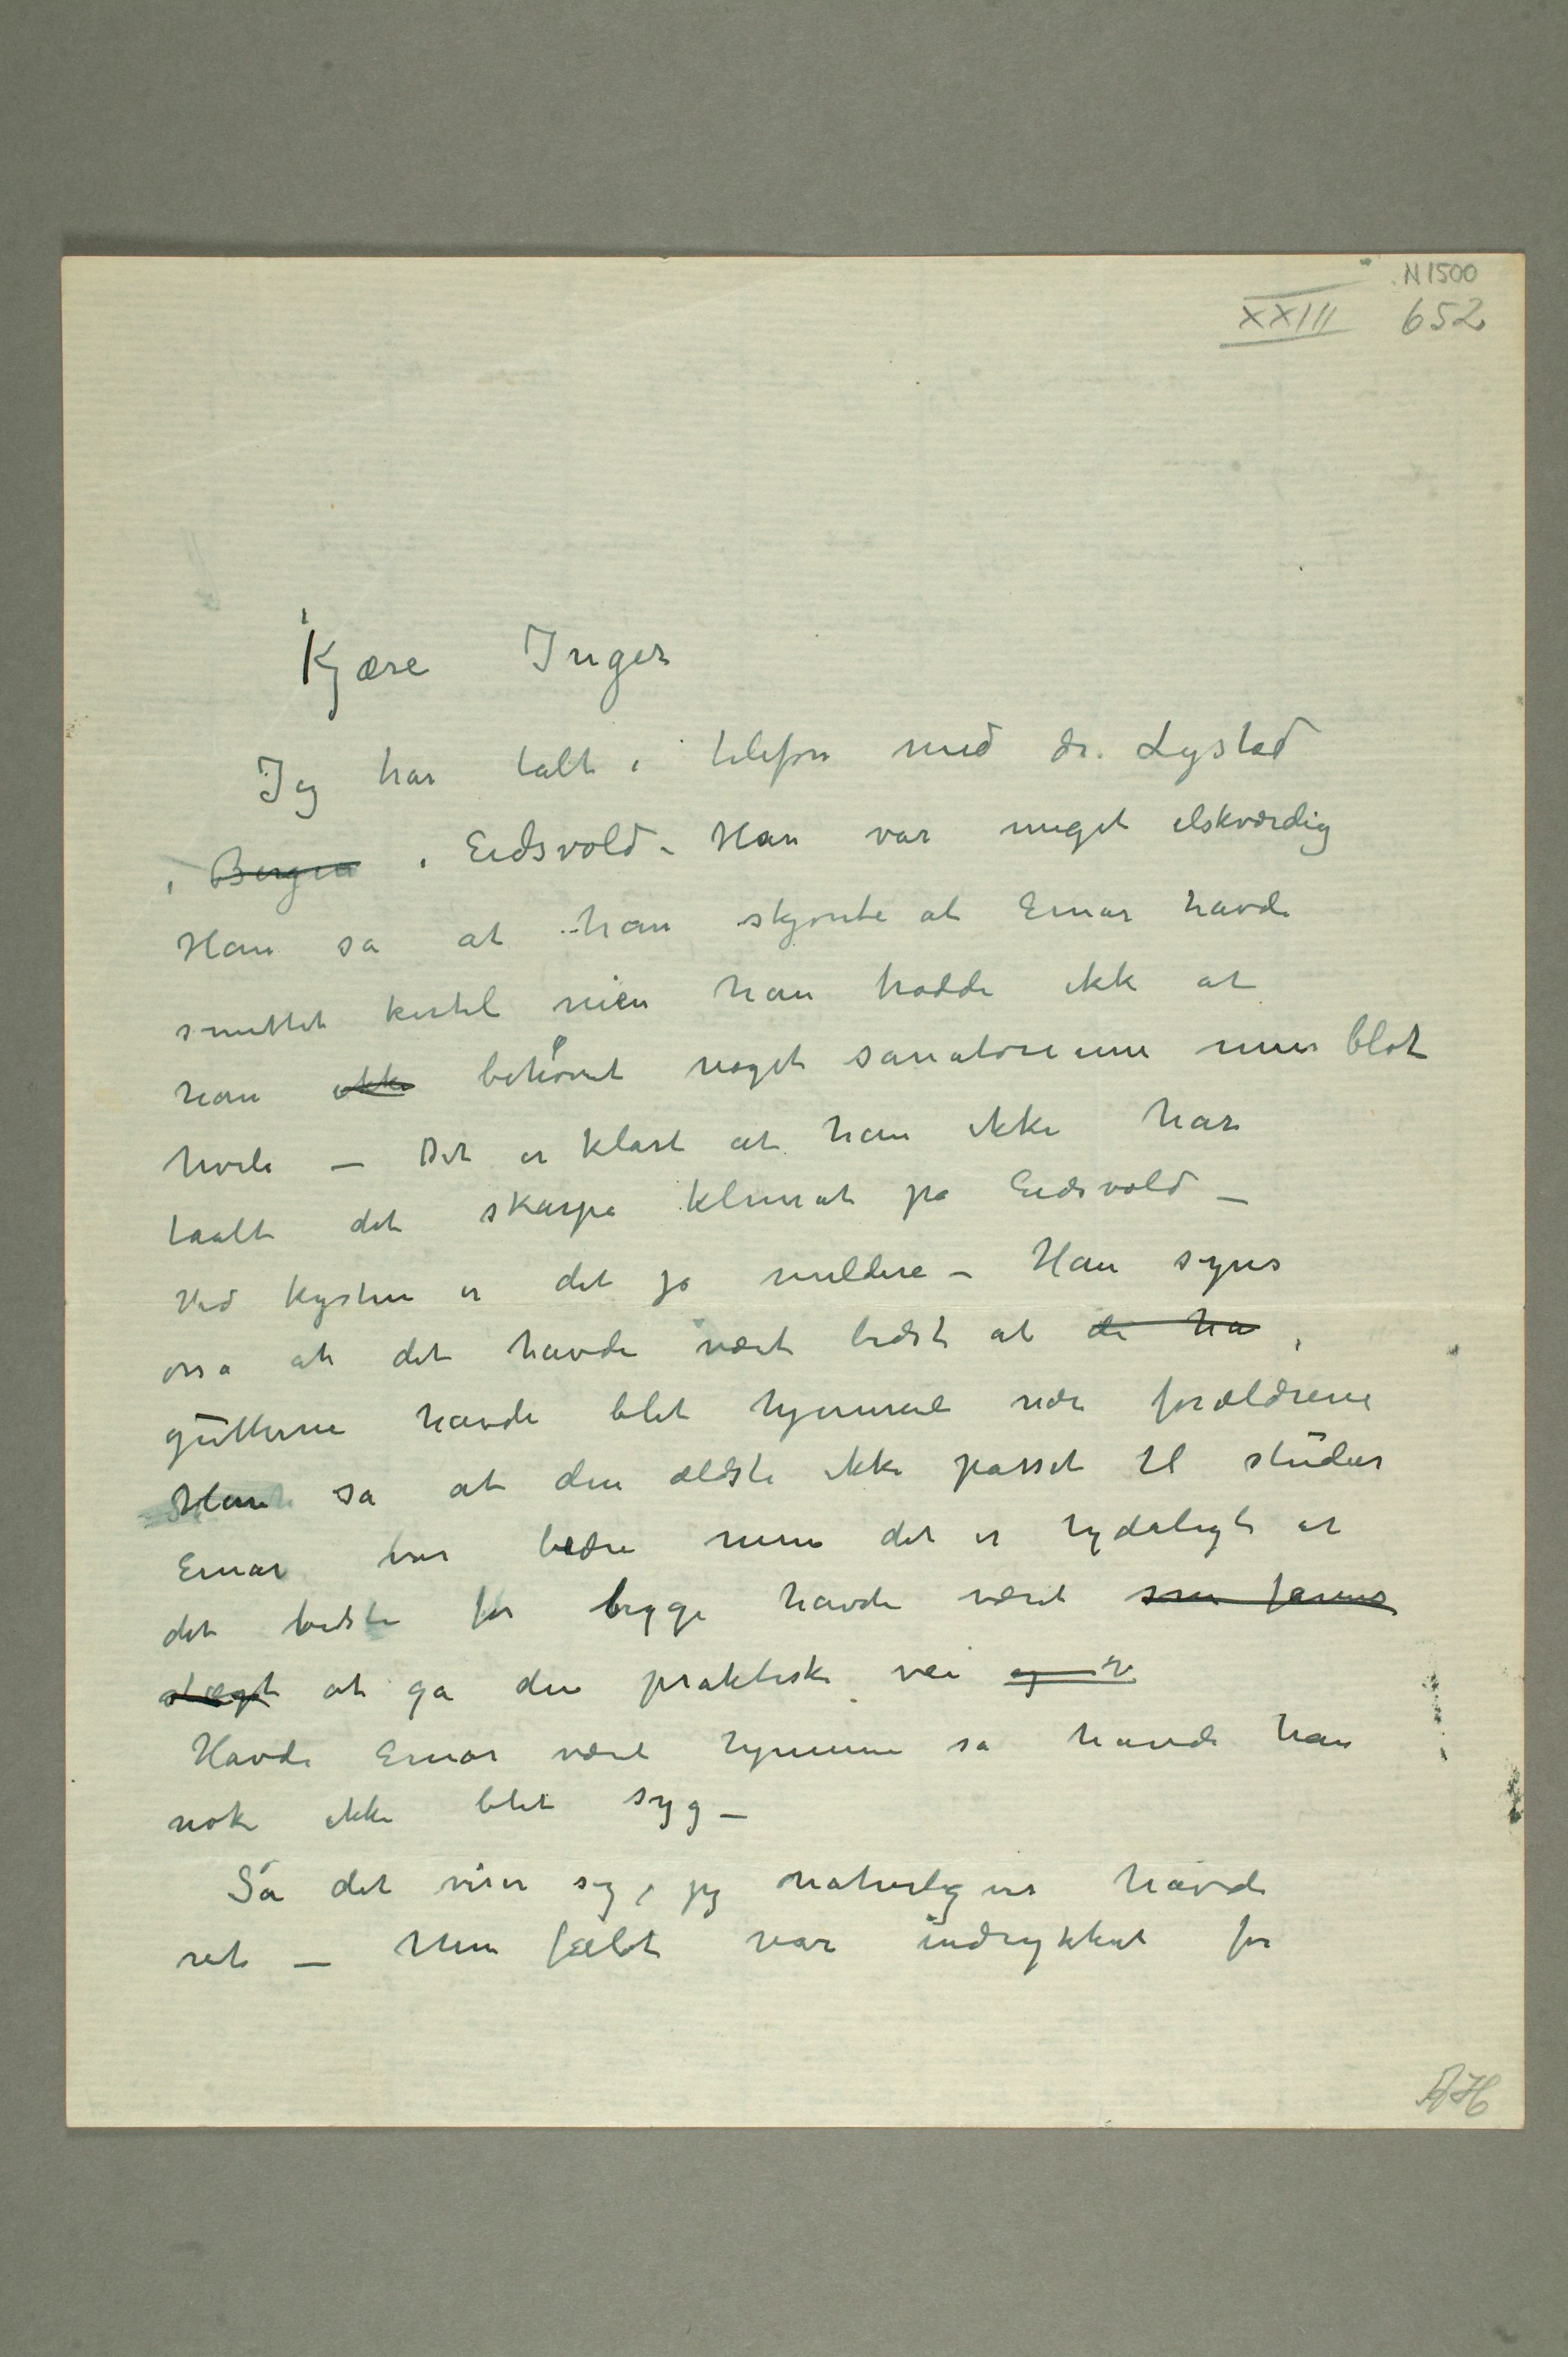 N 1500
XXIII 652
Kjære Inger
Jeg har talt i telefon med dr. Lystad
i Bergen i Eidsvold – Han var meget elskværdig
Han sa at han skjønte at Einar havde
smittet kirtel men han trodde ikk at
han ikke behøvet noget sanatorium men blot
hvile – Det er klart at han ikke har
taalt det skarpe klimat på Eidsvold –
Ved kysten er det jo mildere – Han synes
osså at det havde vært bedst at de ha
gutterne havde blet hjemme hos forældrene
Han sa at den ældste ikke passet til studier
Einar bedre men det er tydeligt at
det bedste for begge havde været som farens
slægt at gå den praktiske vei og
Havde Einar været hjemme så havde han
nok ikke blet syg –
Så det viser sig, jeg naturligvis havde
ret – Min fælt var indtrykket for
AH